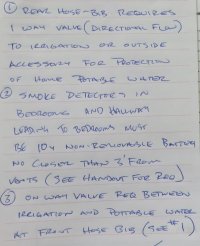 ① REAR HOSE-BIB REQUIRES
1 WAY VALVE (DIRECTIONAL FLOW)
TO IRRIGATION OR OUTSIDE
ACCESSORY FOR PROTECTION
OF HOME POTABLE WATER
② SMOKE DETECTORS IN
BEDROOMS AND HALLWAY
LEADING TO BEDROOMS MUST
BE 10Y NON-REMOVABLE BATTERY
NO CLOSER THAN 3' FROM
VENTS (SEE HANDOUT FOR REQ)
③ ON WAY VALVE REQ BETWEEN
IRRIGATION AND POTTABLE WATER
AT FRONT HOSE BIB (SEE #1)